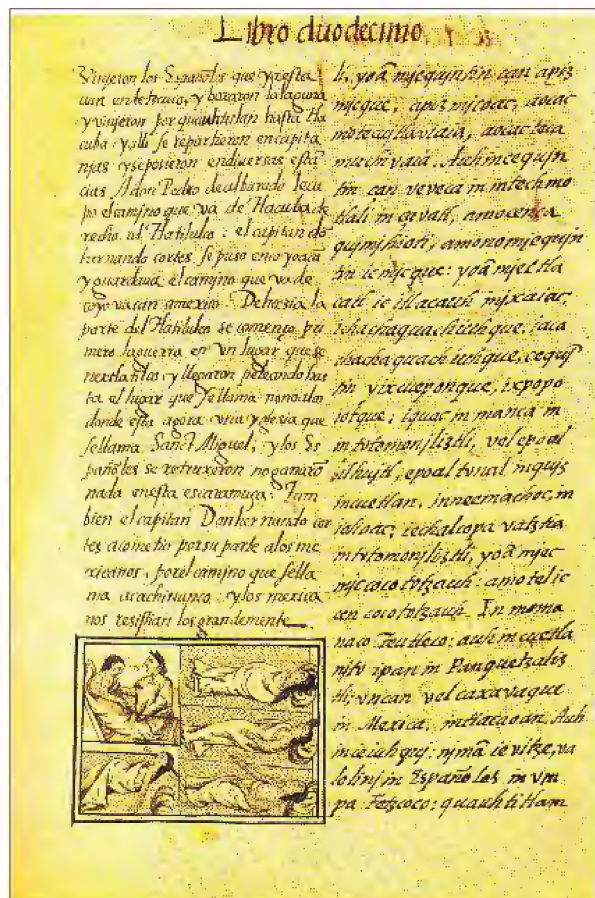 Libro duodecimo.
Vinjeron los Españoles que ya esta
uan en tetzcuco, y boxaron la laguna
y vinjeron por quauhtitlan hasta tla
cuba: y alli se repartieron en capita
njas y se posieron en diuersas esta
cias. A don Pedro de albarado le cu
po el camjno que va de tlacuba de
recho al tlatilulco: el capitan do
hernando cortes se puso en coyoacã
y guardaua el camjno que va de
coyoacan a mexico. De hazia la
parte del tlatilulco se començo pri
mero la guerra en vn lugar que se
nextlatilco y llegaron peleando has
ta el lugar que se llama nonoalco
donde esta agora vna yglesia que
se llama Sanct Mjguel, y los Es
pañoles se retruxeron no ganarõ
nada en esta escaramuça. Tam
bien el capitan Don hernando cor
tes acometio por su parte a los me
xicanos, por el camjno que se lla
ma acachinanco: y los mexica
nos resistian los grandemente
li, yoã mjequjntin çan apiz
mjcque, apizmjcoac, aocac
motecujtlaviaia, aocac teca
muchivaia. Auh in cequjn
tin çan veveca in intech mo
tlali in çavatl, amo cenca
qujmjhioti, amo no mjequjn
tin ic mjcque: yoã mjec tla
catl ic itlacauh in jxaiac,
ichachaquachiuhque, iaca
chachaquachiuhque, cequj
tin yixcueponque, ixpopo
iotque: iquac in manca in
in totomonjliztli, vel epoal
ilhujtl, epoal tonal in quiz
in cuetlan, in neemachoc, in
ioloac; ie chalcopa vatztia
in totomonjliztli, yoã mjec
njc cocototzauh: amo tel ic
cen cocototzauh. In moma
naco Teutleco: auh in cuetla
njto ipan in Panquetzaliz
tli: vncan vel caxavaque
in Mexica, in tiacaoan. Auh
in ie iuhquj: njmã ie vitze, va
lolinj in Españoles in vm
pa Tetzcoco: quauhtitlam